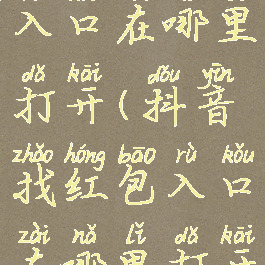 入口在哪里
dǎ kāi dǒu yīn
打开(抖音
zhǎo hóng bāo rù kǒu
找红包入口
zài nǎ lǐ dǎ kāi
在哪里打开